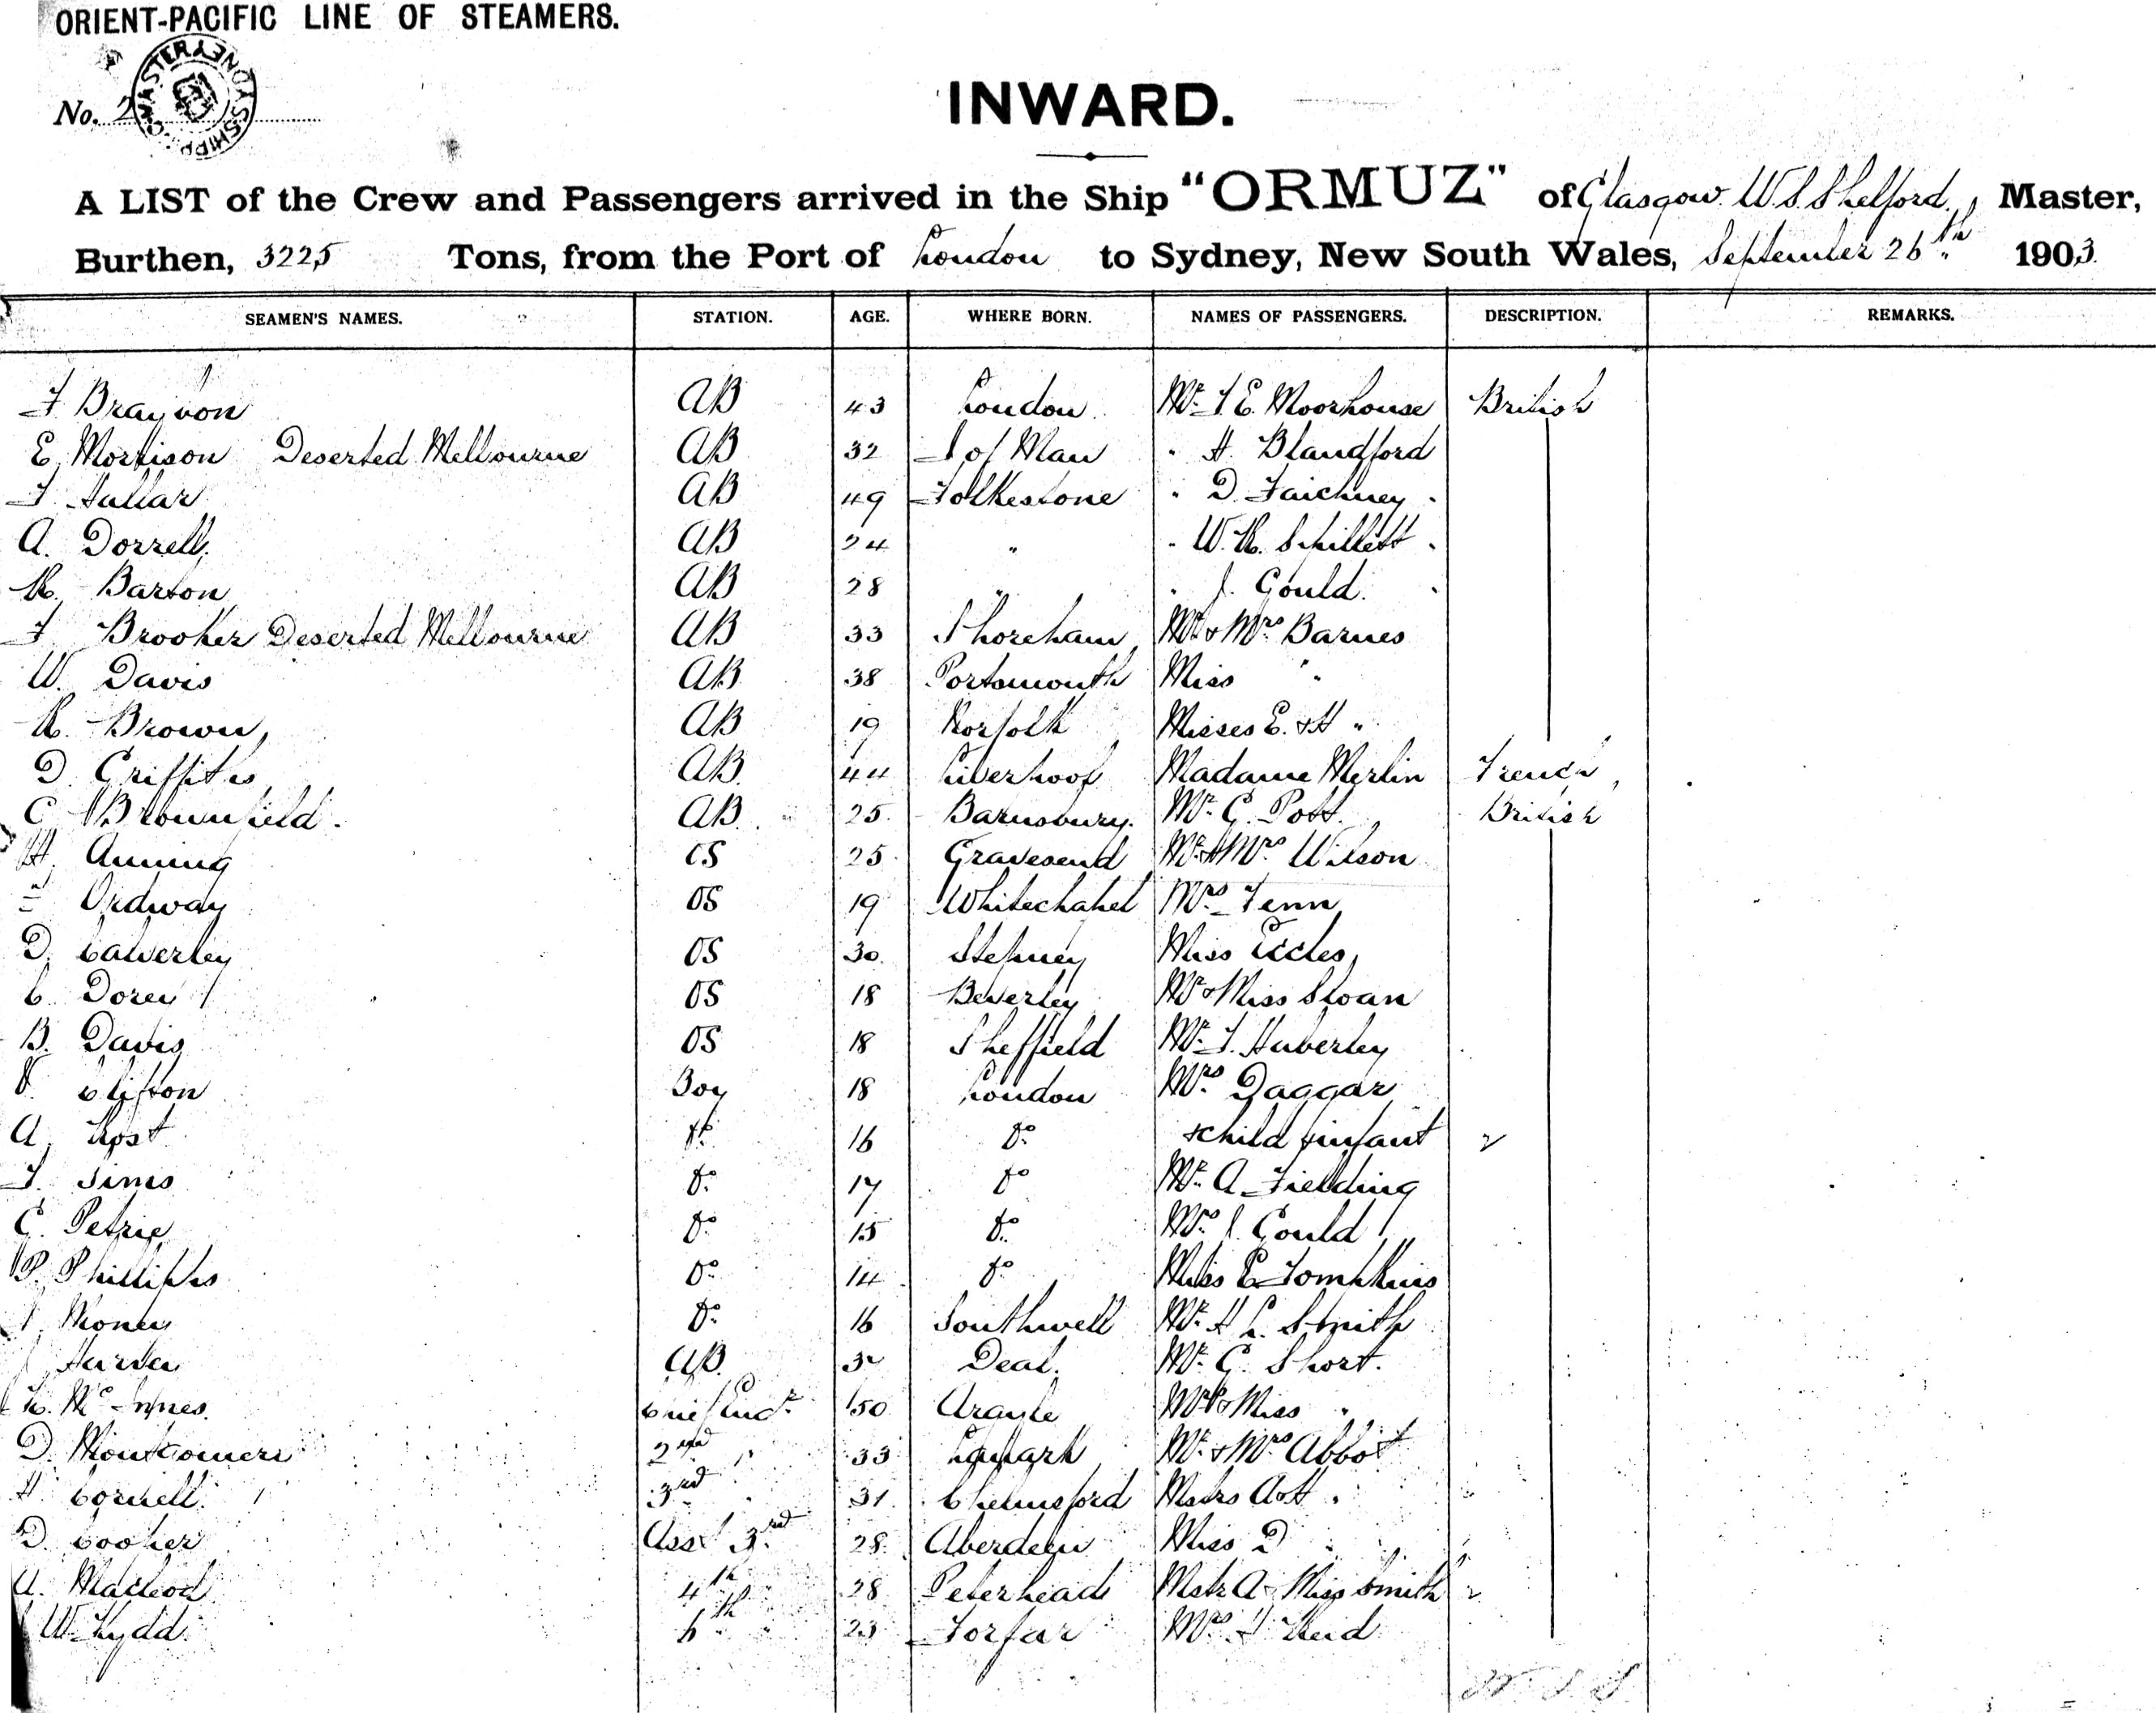 ORIENT-PACIFIC LINE OF STEAMERS.
No. 2
INWARD.
A LIST of the Crew and Passengers arrived in the Ship "ORMUZ" of Glasgow. W S Shelford, Master,
Burthen, 3225 Tons, from the Port of London to Sydney, New South Wales, September 26th 1903.
SEAMEN'S NAMES. STATION. AGE. WHERE BORN. NAMES OF PASSENGERS. DESCRIPTION. REMARKS.
AB 43 London Mr. Moorhouse British
E. Morrison Deserted Melbourne AB 32 I of Man " H. Blandford
AB 49 Folkestone " D. Faichney "
A. Dorrell AB 24 " "
R. Barton AB 28 " " J. Gould. "
F Brooker Deserted Melbourne AB 33 Shoreham Mr & Mrs Barnes
W. Davis AB 38 Portsmouth Miss "
R. Brown AB 19 Norfolk Misses E. & H "
D. Griffiths AB. 44 Liverpool Madame Merlin French
C Brownfield. AB. 25. Barnsbury. Mr. G. Pott. British
H. Anning OS 25 Gravesend Mr & Mrs Wilson
Ordway OS 19 Whitechapel Mrs Fenn
D. Calverley OS 30. Stepney Miss Eccles
C. Dorey OS 18 Beverley Mr & Miss Sloan
B. Davis OS 18 Sheffield Mr. Huberley
Clifton Boy 18 London Mrs Daggar
A. Do 16 Do & child & infant
F. Sims Do 17 Do Mr. A Fielding
C. Petrie Do 15 Do Mrs J. Gould
P. Phillips Do 14 Do Miss E Tompkins
Do 16 Southwell Mr. H L. Smith
AB. Deal. Mr. G. Short.
Mc Innes. Chief Engr 50 Argyle Mrs & Miss "
D. Montgomery 2nd " 33 Lanark Mr. & Mrs Abbot
H. Cornell. 3rd 31. Chelmsford Mstrs A & H "
D. Cooper Asst 3rd 28. Aberdeen Miss D "
A. Macleod 4th 28 Peterhead Mstr A & Miss Smith
W. Kydd 23 Forfar Mrs Reid